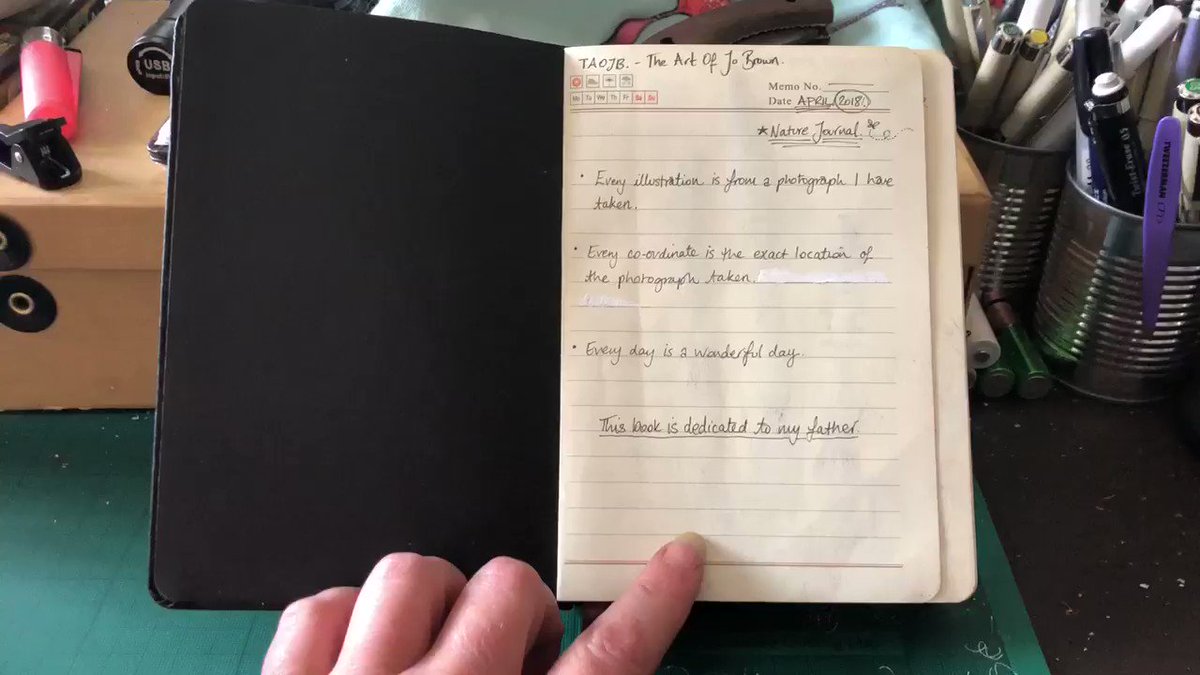 TAOJB. - The Art Of Jo Brown.
Mo Tu We Th Fr Sa Su
Memo No.
Date APRIL 2018.
★ Nature Journal.
• Every illustration is from a photograph I have
taken.
• Every co-ordinate is the exact location of
the photograph taken.
• Every day is a wonderful day.
This book is dedicated to my father.
USB
TWEEZERMAN